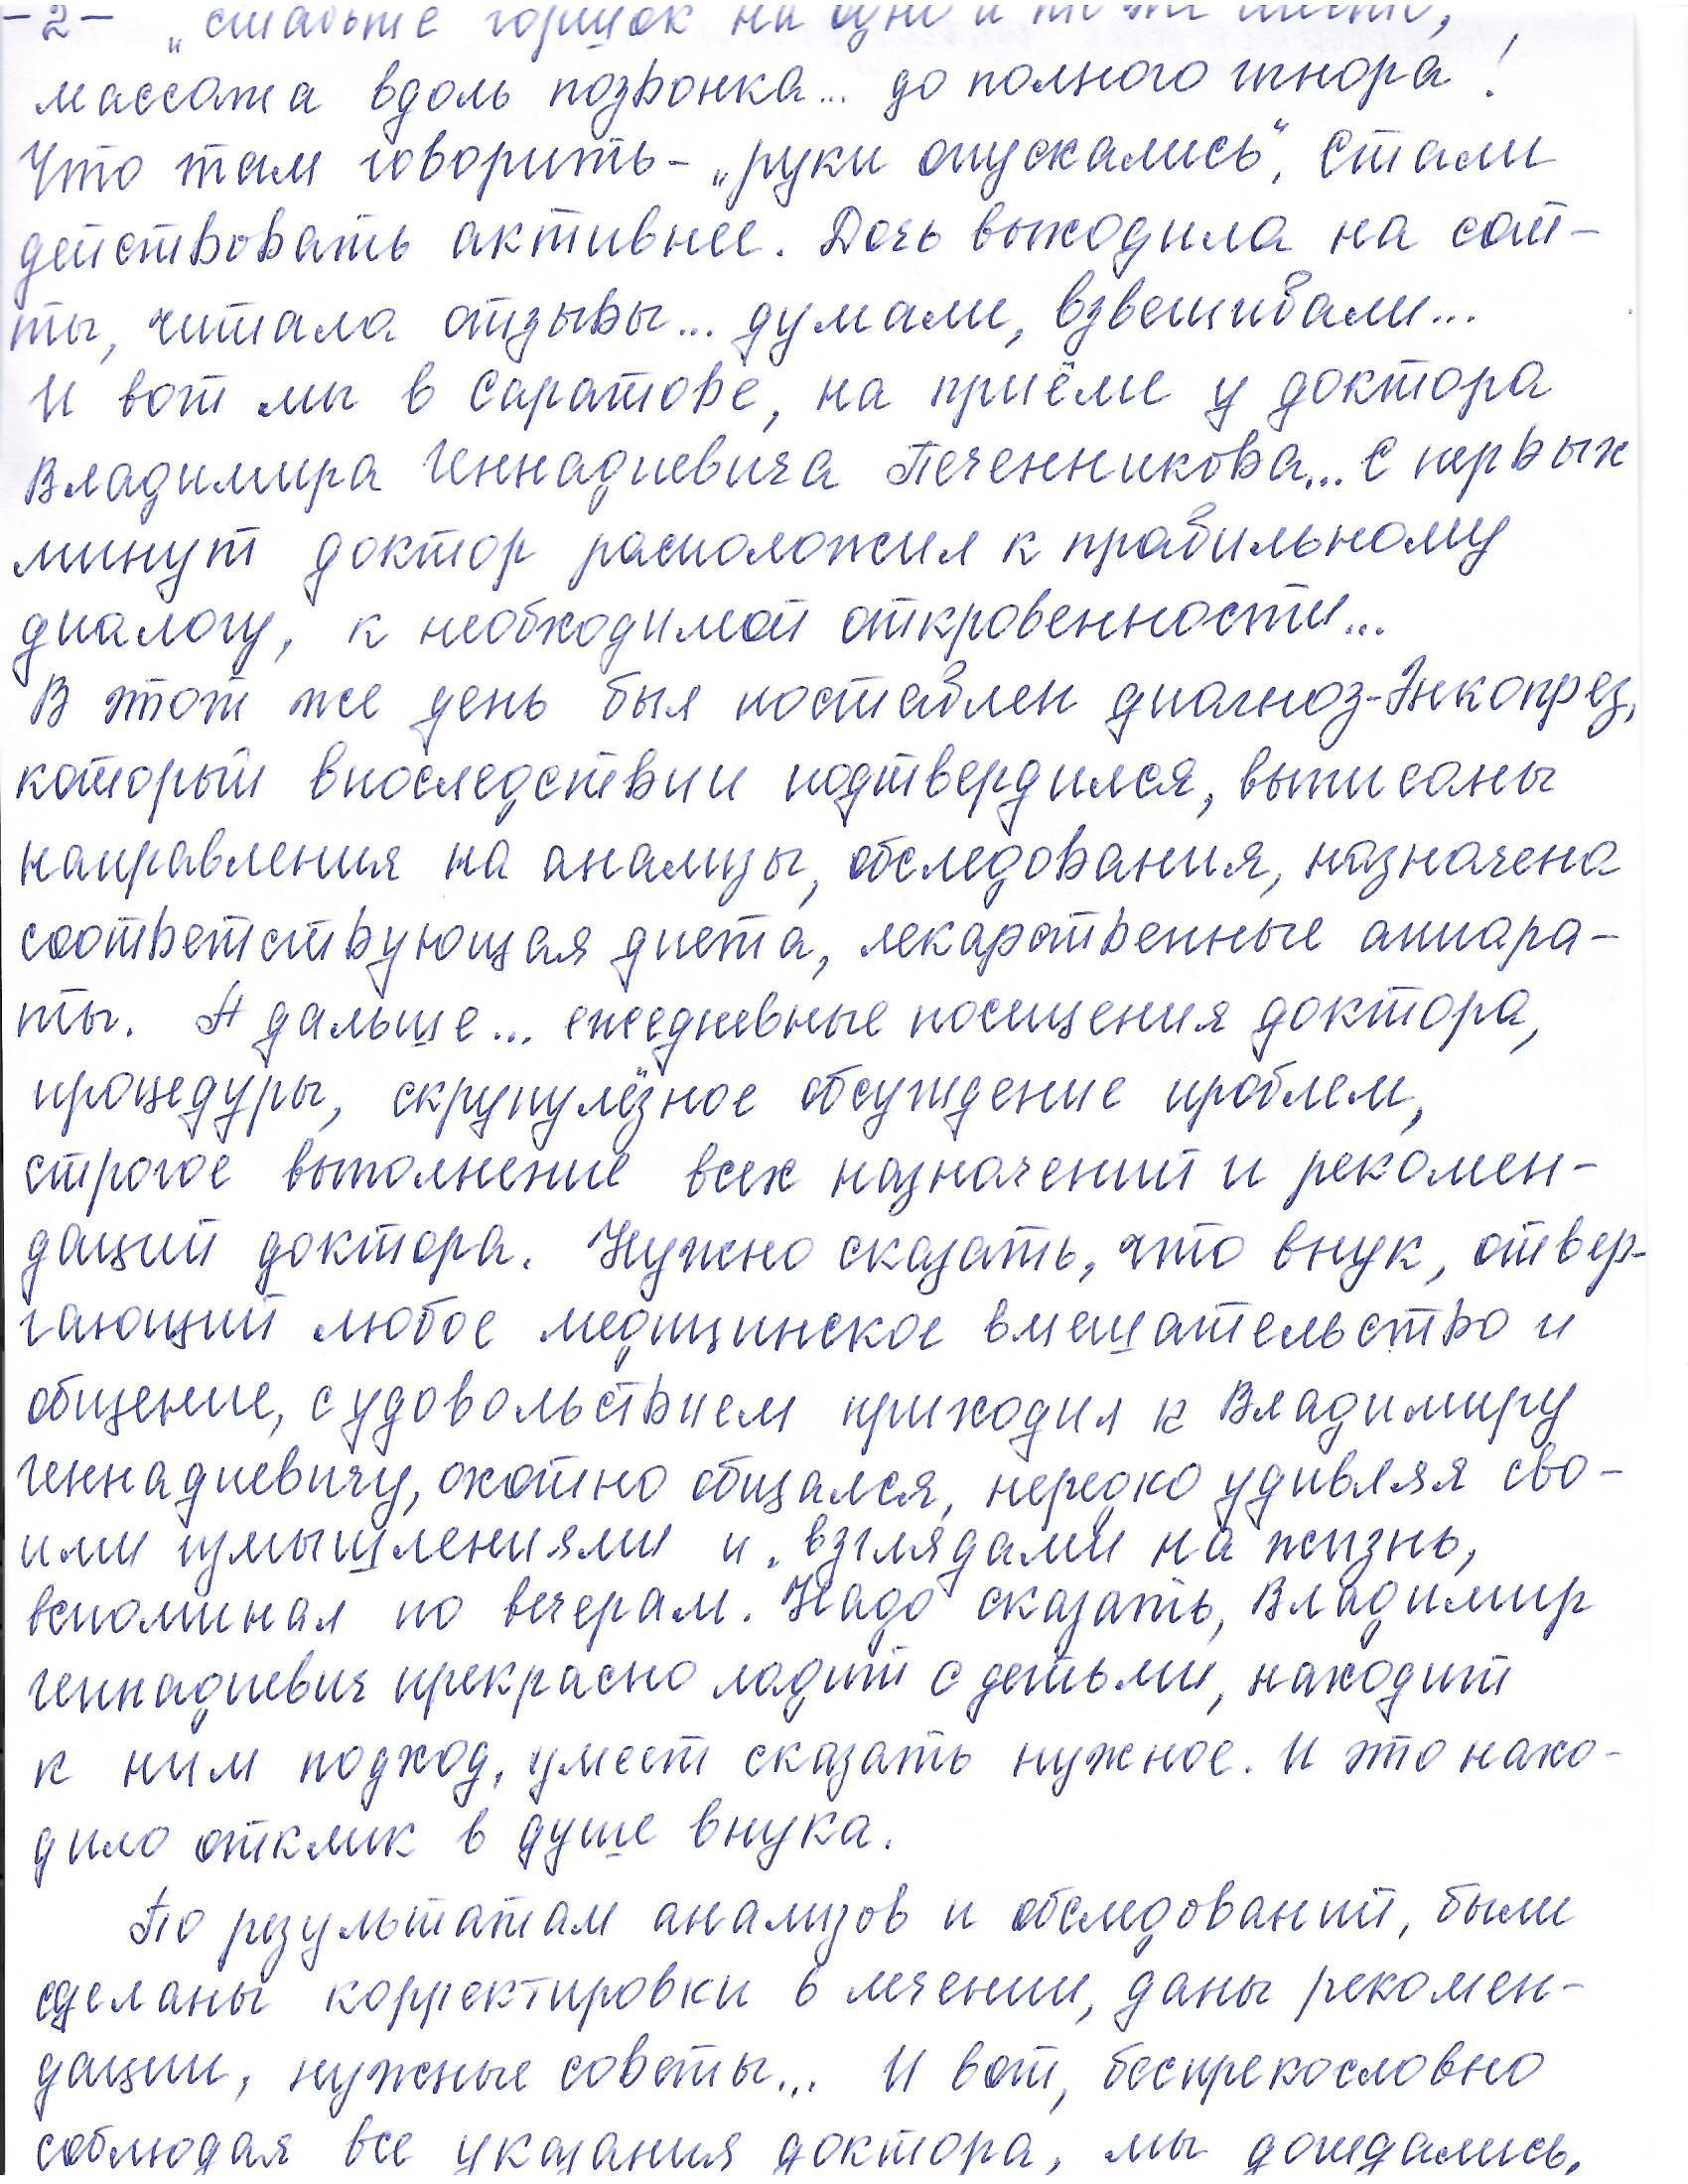 -2- „ставьте горшок на одно и то же место,
массажа вдоль позвонка... до полного игнора!
Что там говорить - „руки опускались“, стали
действовать активнее. Дочь выходила на сай-
ты, читала отзывы... думали, взвешивали...
И вот мы в Саратове, на приёме у доктора
Владимира Геннадиевича Печенникова... С первых
минут доктор расположил к правильному
диалогу, к необходимой откровенности...
В этот же день был поставлен диагноз-Энкопрез,
который впоследствии подтвердился, выписаны
направления на анализы, обследования, назначена
соответствующая диета, лекарственные аппара-
ты. А дальше... ежедневные посещения доктора,
процедуры, скрупулёзное обсуждение проблем,
строгое выполнение всех назначений и рекомен-
даций доктора. Нужно сказать, что внук, отвер-
гающий любое медицинское вмешательство и
общение, с удовольствием приходил к Владимиру
Геннадиевичу, охотно общался, нередко удивляя сво-
ими измышлениями и взглядами на жизнь,
вспоминал по вечерам. Надо сказать, Владимир
Геннадиевич прекрасно ладит с детьми, находит
к ним подход, умеет сказать нужное. И это нахо-
дило отклик в душе внука.
По результатам анализов и обследований, были
сделаны корректировки в лечении, даны рекомен-
дации, нужные советы... И вот, беспрекословно
соблюдая все указания доктора, мы дождались,